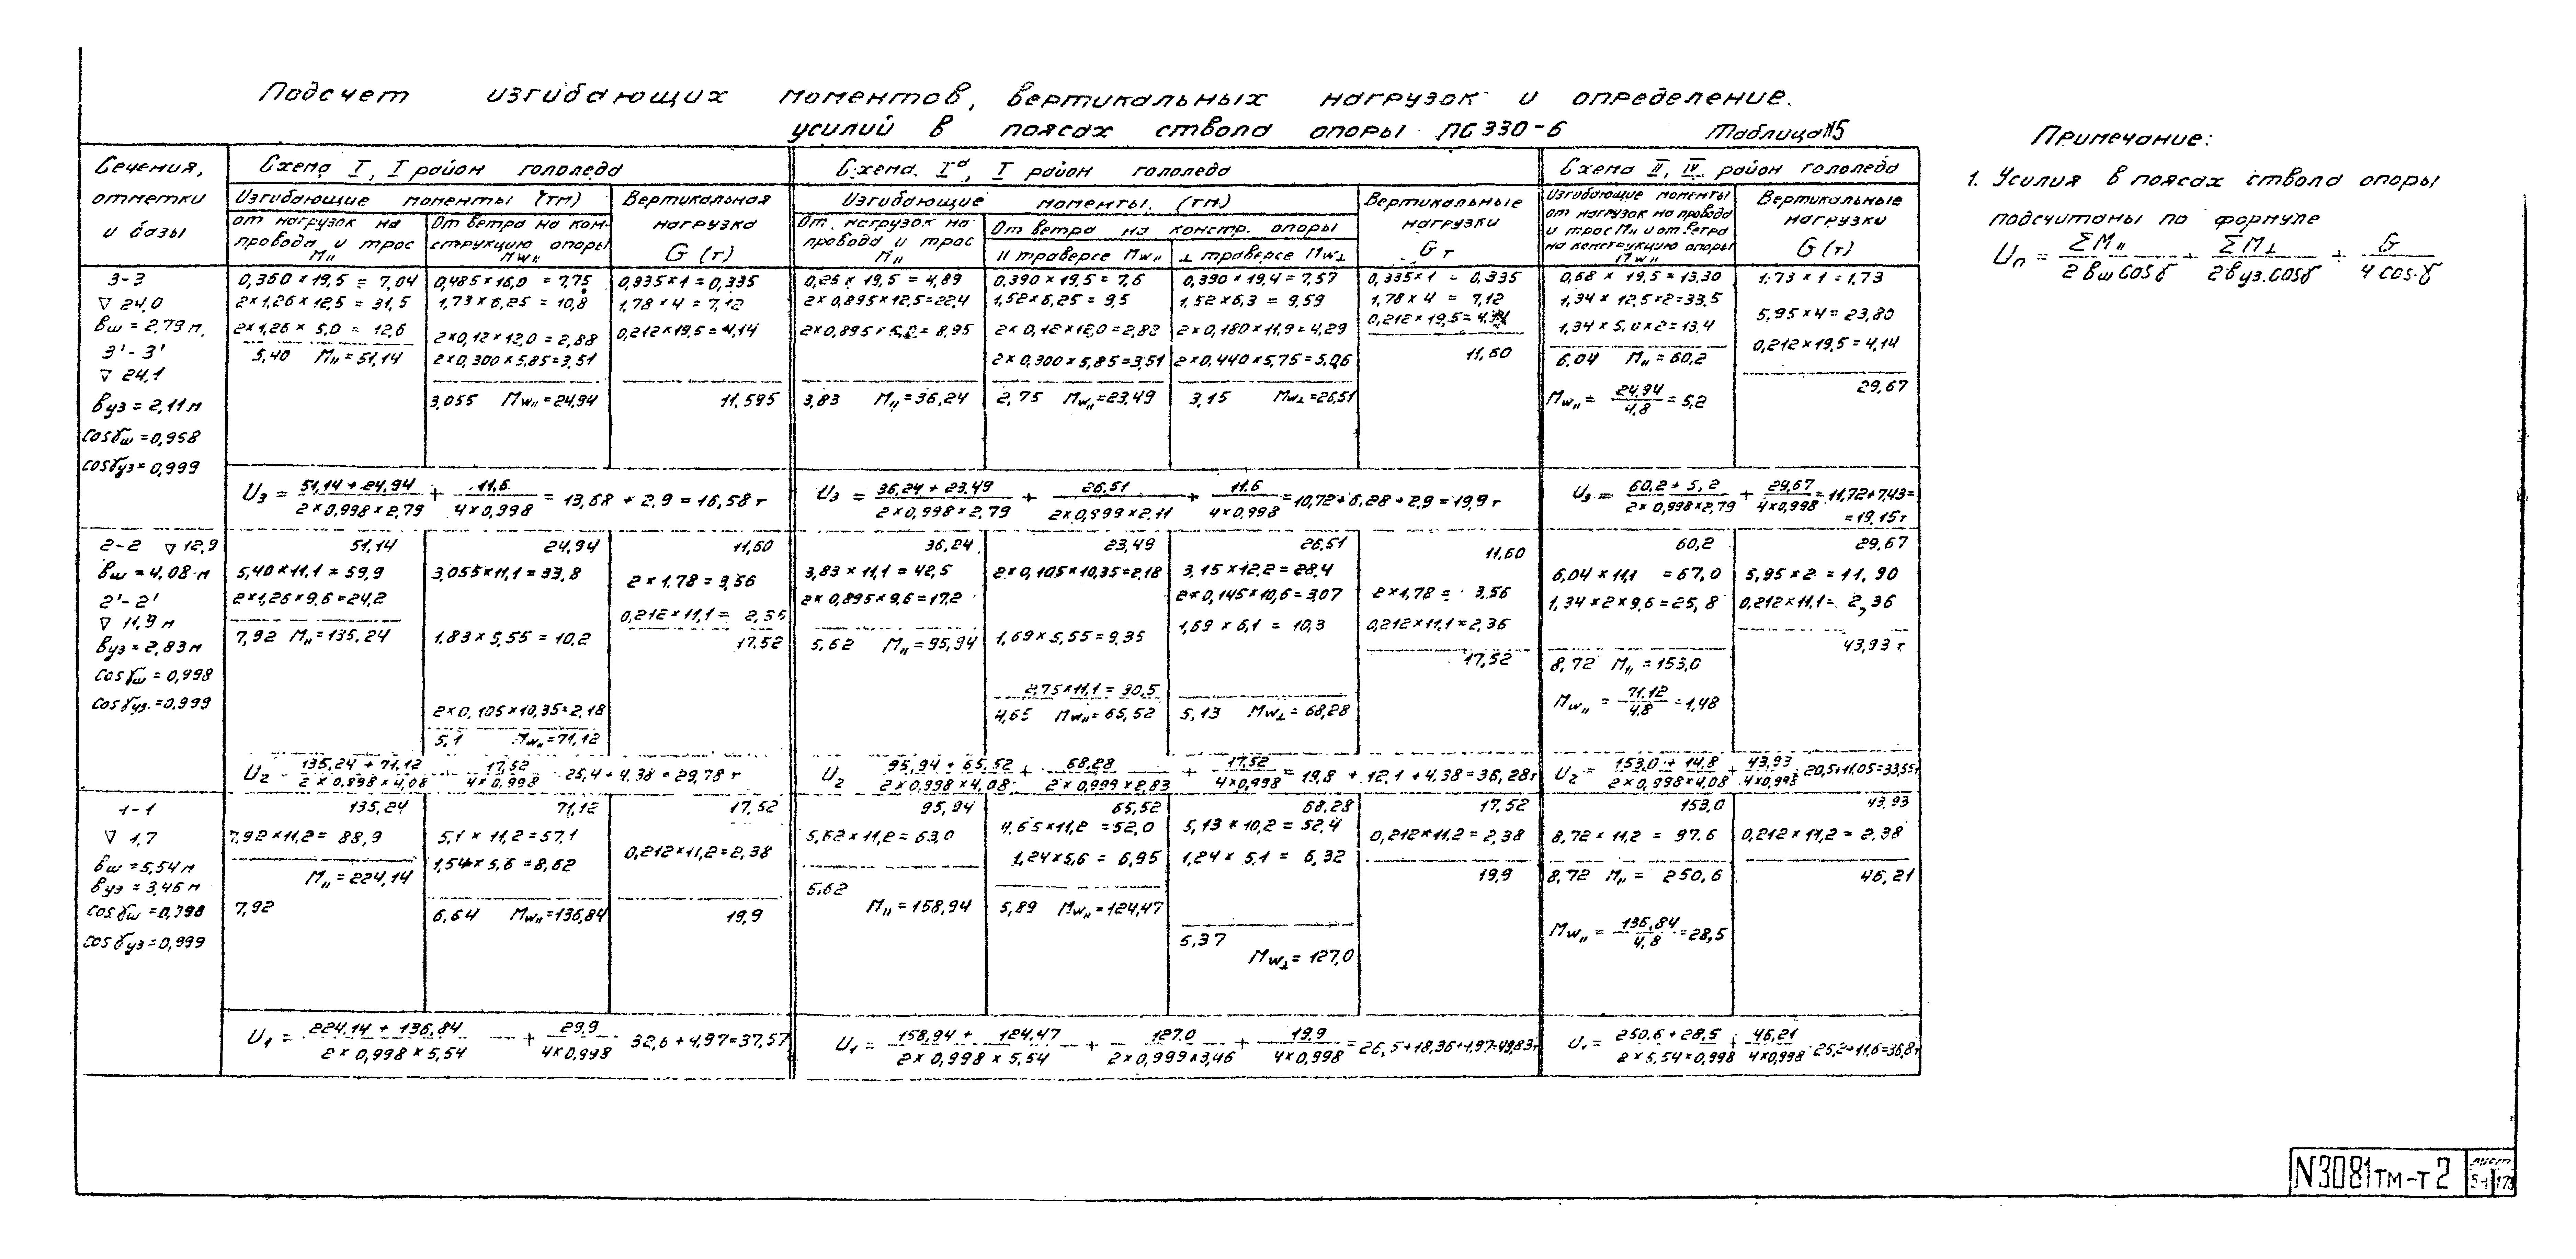 Подсчет изгибающих моментов, вертикальных нагрузок и определение.
усилий в поясах ствола опоры ПС 330-6
Таблица N5
Сечения,
отметки
и базы
Схема I, I район гололеда
Изгибающие моменты (тм)
Вертикальная
нагрузка
G (т)
от нагрузок на
провода и трос
M״
От ветра на кон-
струкцию опоры
Mw״
Схема. Iа, I район гололеда
Изгибающие моменты. (тм)
От. нагрузок на
провода и трос
M״
От ветра на констр. опоры
II траверсе Mw״
⊥ траверсе Mw⊥
Вертикальные
нагрузки
G т
Схема II, IV район гололеда
Изгибающие моменты
от нагрузок на провода
и трос M״ и от ветра
на конструкцию опоры
Mw״
Вертикальные
нагрузки
G (т)
3-3
▽ 24,0
вш = 2,79 м.
3'-3'
▽ 24,1
вуз = 2,11 м
cosγш = 0,958
cosγуз = 0,999
0,360 × 19,5 = 7,04
2×1,26 × 12,5 = 31,5
2×1,26 × 5,0 = 12,6
5,40 M״ = 51,14
0,485×16,0 = 7,75
1,73 × 6,25 = 10,8
2×0,12×12,0 = 2,88
2×0,300×5,85=3,51
3,055 Mw״=24,94
0,335×1 = 0,335
1,78 × 4 = 7,12
0,212×19,5 = 4,14
11,595
0,25 × 19,5 = 4,89
2×0,895×12,5=22,4
2×0,895×5,0= 8,95
3,83 M״ = 36,24
0,390 × 19,5 = 7,6
1,52×6,25 = 9,5
2×0,12×12,0=2,88
2×0,300×5,85=3,51
2,75 Mw״=23,49
0,390 × 19,4 = 7,57
1,52×6,3 = 9,59
2×0,180×11,9=4,29
2×0,440×5,75=5,06
3,15 Mw⊥=26,51
0,335×1 = 0,335
1,78×4 = 7,12
0,212×19,5=4,14
11,60
0,68 × 19,5 = 13,30
1,34 × 12,5×2=33,5
1,34× 5,0×2=13,4
6,04 M״ = 60,2
Mw״ = 24,94 / 4,8 = 5,2
1.73 × 1 = 1,73
5,95×4 = 23,80
0,212×19,5=4,14
29,67
U3 = 51,14 + 24,94 / 2×0,998×2,79 + 11,6 / 4×0,998 = 13,68 + 2,9 = 16,58 т
U3 = 36,24 + 23,49 / 2×0,998×2,79 + 26,51 / 2×0,999×2,11 + 11.6 / 4×0,998 = 10,72+6,28+2,9=19,9 т
U3 = 60,2+ 5,2 / 2×0,998×2,79 + 29,67 / 4×0,998 = 11,72+7,43=
=19,15т
2-2 ▽ 12,9
вш = 4,08 м
2'-2'
▽ 11,9 м
вуз = 2,83 м
cosγш = 0,998
cosγуз. =0,999
51,14
5,40×11,1 = 59,9
2×1,26×9,6=24,2
7,92 M״=135,24
24,94
3,055×11,1=33,8
1.83 × 5,55 = 10,2
2×0,105×10,35=2,18
5,1 Mw״=71,12
11,60
2×1,78 = 3,56
0,212×11,1 =
17.52
36,24
3,83 × 11,1 = 42,5
2× 0,895×9,6 = 17,2
5,62 M״ = 95,94
23,49
2×0,105×10,35=2,18
1,69×5,55=9,35
2,75×11,1 = 30,5
4,65 Mw״= 65,52
26,51
3,15×12,2=28,4
2×0,145×10,6=3,07
1,69 × 6,1 = 10,3
5,13 Mw⊥=68,28
11,60
2×1,78 = 3.56
0,212×11,1=2,36
17,52
60,2
6,04 ×11,1 =67,0
1,34×2×9,6=25,8
8,72 M״ = 153,0
Mw״ = 71,12 / 4,8 = 1,48
29,67
5,95×2 = 11,90
0,212×11,1= 2,36
43,93 т
U2 135,24 + 71,12 / 2×0,998×4,08 17,52 / 4×0,998 25,4 + 4.38 = 29,78 т
U2 95,94 + 65,52 / 2×0,998×4,08 + 68.28 / 2×0,999×2,83 + 17,52 / 4×0,998 = 19,8 + 12,1 + 4,38=36,28т
U2 = 153,0 + 14,8 / 2×0,998×4,08 + 43,93 / 4×0,998 20,5+11,05=33,55т
1-1
▽ 1,7
вш = 5,54 м
вуз = 3,46 м
cosγш =0,998
cosγуз=0,999
135,24
7,92×11,2= 88,9
M״ = 224,14
7,92
71,12
5,1 × 11,2 = 57,1
1,54×5,6 = 8,62
6,64 Mw״=136,84
17,52
0,212×11,2=2,38
19,9
95,94
5,62×11,2 = 63,0
5,62
M״ = 158,94
65,52
4,65×11,2 =52,0
1,24×5,6 = 6,95
5,89 Mw״=124,47
68,28
5,13 × 10,2 = 52,4
1,24× 5,1 = 6,32
5,37
Mw⊥= 127,0
17,52
0,212×11,2 = 2,38
19,9
153,0
8,72 × 11,2 = 97.6
8,72 M״ = 250,6
Mw״ = 136,84 / 4,8 = 28,5
43,93
0,212×11,2= 2,38
46,21
U1 = 224,14 + 136,84 / 2× 0,998 × 5,54 + 29,9 / 4×0,998 32,6 + 4,97=37,57
U1 = 158,94 + 124,47 / 2× 0,998 × 5,54 + 127.0 / 2×0,999×3,46 + 19.9 / 4×0,998 = 26,5+18,36+4,97=49,83т
U1 = 250.6 + 28,5 / 2×5,54×0,998 + 46,21 / 4×0,998 25,2+11,6=36,8т
Примечание:
1. Усилия в поясах ствола опоры
подсчитаны по формуле
Uп = ΣM״ / 2 вш cosγ + ΣM⊥ / 2вуз.cosγ + G / 4 cosγ
N3081тм-т2
лист